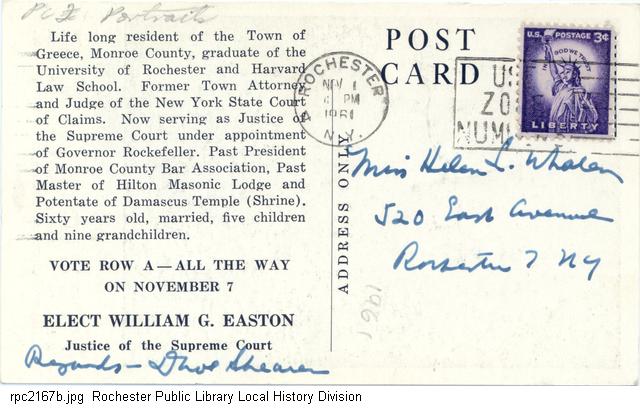 Pic Portraits
Life long resident of the Town of
Greece, Monroe County, graduate of the
University of Rochester and Harvard
Law School. Former Town Attorney
and Judge of the New York State Court
of Claims. Now serving as Justice of
the Supreme Court under appointment
of Governor Rockefeller. Past President
of Monroe County Bar Association, Past
Master of Hilton Masonic Lodge and
Potentate of Damascus Temple (Shrine).
Sixty years old, married, five children
and nine grandchildren.
VOTE ROW A — ALL THE WAY
ON NOVEMBER 7
ELECT WILLIAM G. EASTON
Justice of the Supreme Court
Regards — Shearer
ADDRESS ONLY
POST
CARD
ROCHESTER
NOV 1
PM
1961
N.Y.
U.S. POSTAGE 3¢
IN GOD WE TRUST
LIBERTY
Miss Helen L. Whalen
520 East Avenue
Rochester 7 NY
1961
rpc2167b.jpg Rochester Public Library Local History Division